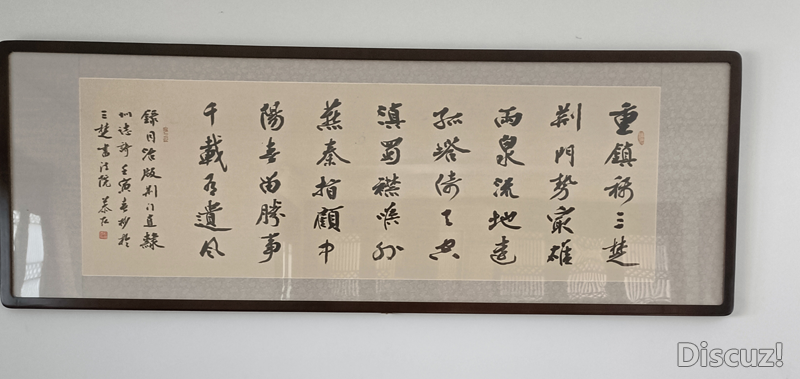 重鎮稱三楚
荊門勢最雄
兩泉流地遠
孤塔倚天空
滇蜀襟喉外
燕秦指顧中
陽春留勝事
千載有遺風
錄同治版荆门直隸
州志詩壬寅春抄於
三楚書法院
Discuz!